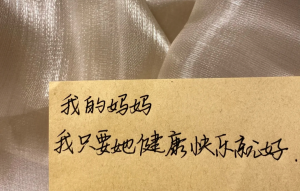 我的妈妈
我只要她健康快乐就好.